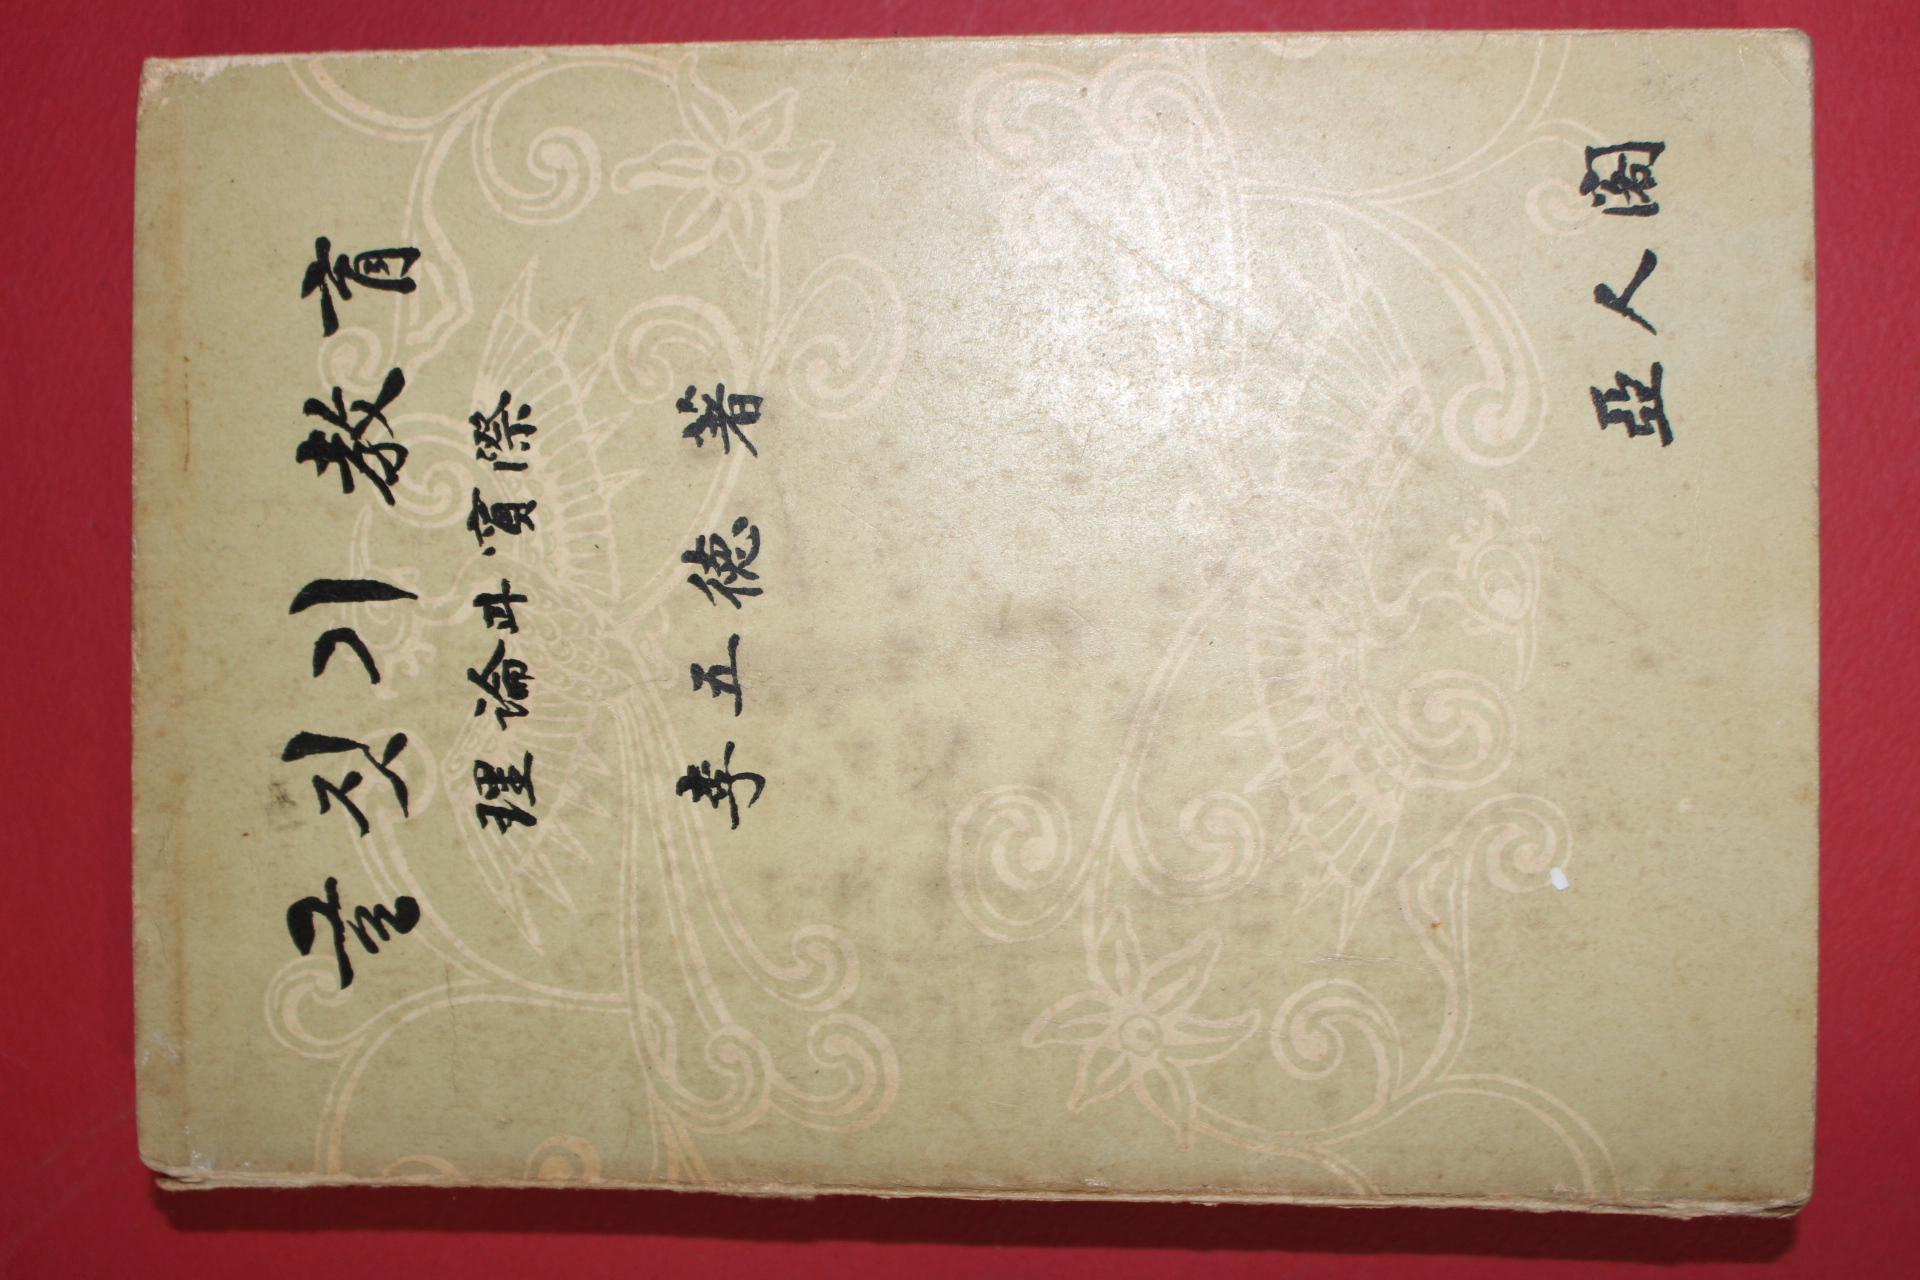 글짓기 教育
理論과 實際
李五德 著
亞人閣